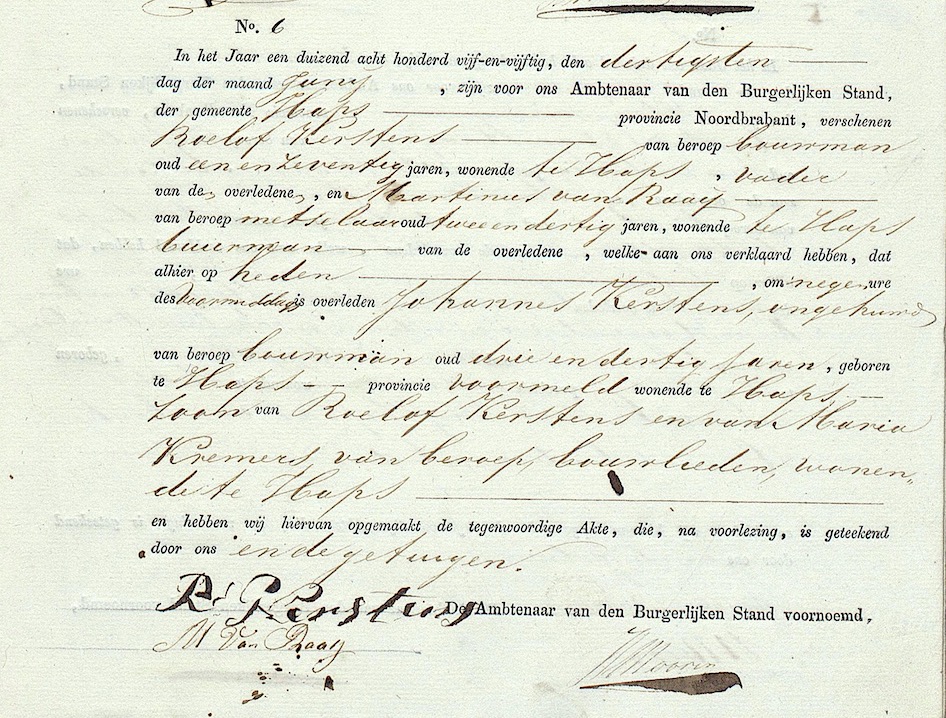 No. 6
In het Jaar een duizend acht honderd vijf-en-vijftig, den dertigsten
dag der maand Juny, zijn voor ons Ambtenaar van den Burgerlijken Stand,
der gemeente Haps provincie Noordbrabant, verschenen
Roelof Kerstens van beroep bouwman
oud een en zeventig jaren, wonende te Haps, vader
van de overledene, en Martinus van Raaij
van beroep metselaar oud twee en dertig jaren, wonende te Haps
buurman van de overledene, welke aan ons verklaard hebben, dat
alhier op heden, om negen ure
des voormiddags is overleden Johannes Kerstens, ongehuwd
van beroep bouwman oud drie en dertig jaren, geboren
te Haps provincie voormeld wonende te Haps
zoon van Roelof Kerstens en van Maria
Kremers, van beroep, bouwlieden, wonen„
de te Haps
en hebben wij hiervan opgemaakt de tegenwoordige Akte, die, na voorlezing, is geteekend
door ons en de getuigen.
R. Kersten De Ambtenaar van den Burgerlijken Stand voornoemd,
M Van Raaij